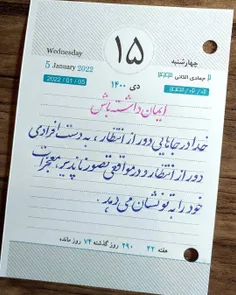 Wednesday
5 January 2022
2022 / 01 / 05
۱۵
چهارشنبه
جمادی الثانی
دی ۱۴۰۰
ایمان داشته باش
خدا در جاهایی دور از انتظار، به دست افرادی
دور از انتظار و در مواقعی تصور ناپذیر، معجزات
خود را به تو نشان می دهد.
هفته ۴۲ ۲۹۰ روز گذشته ۷۴ روز مانده